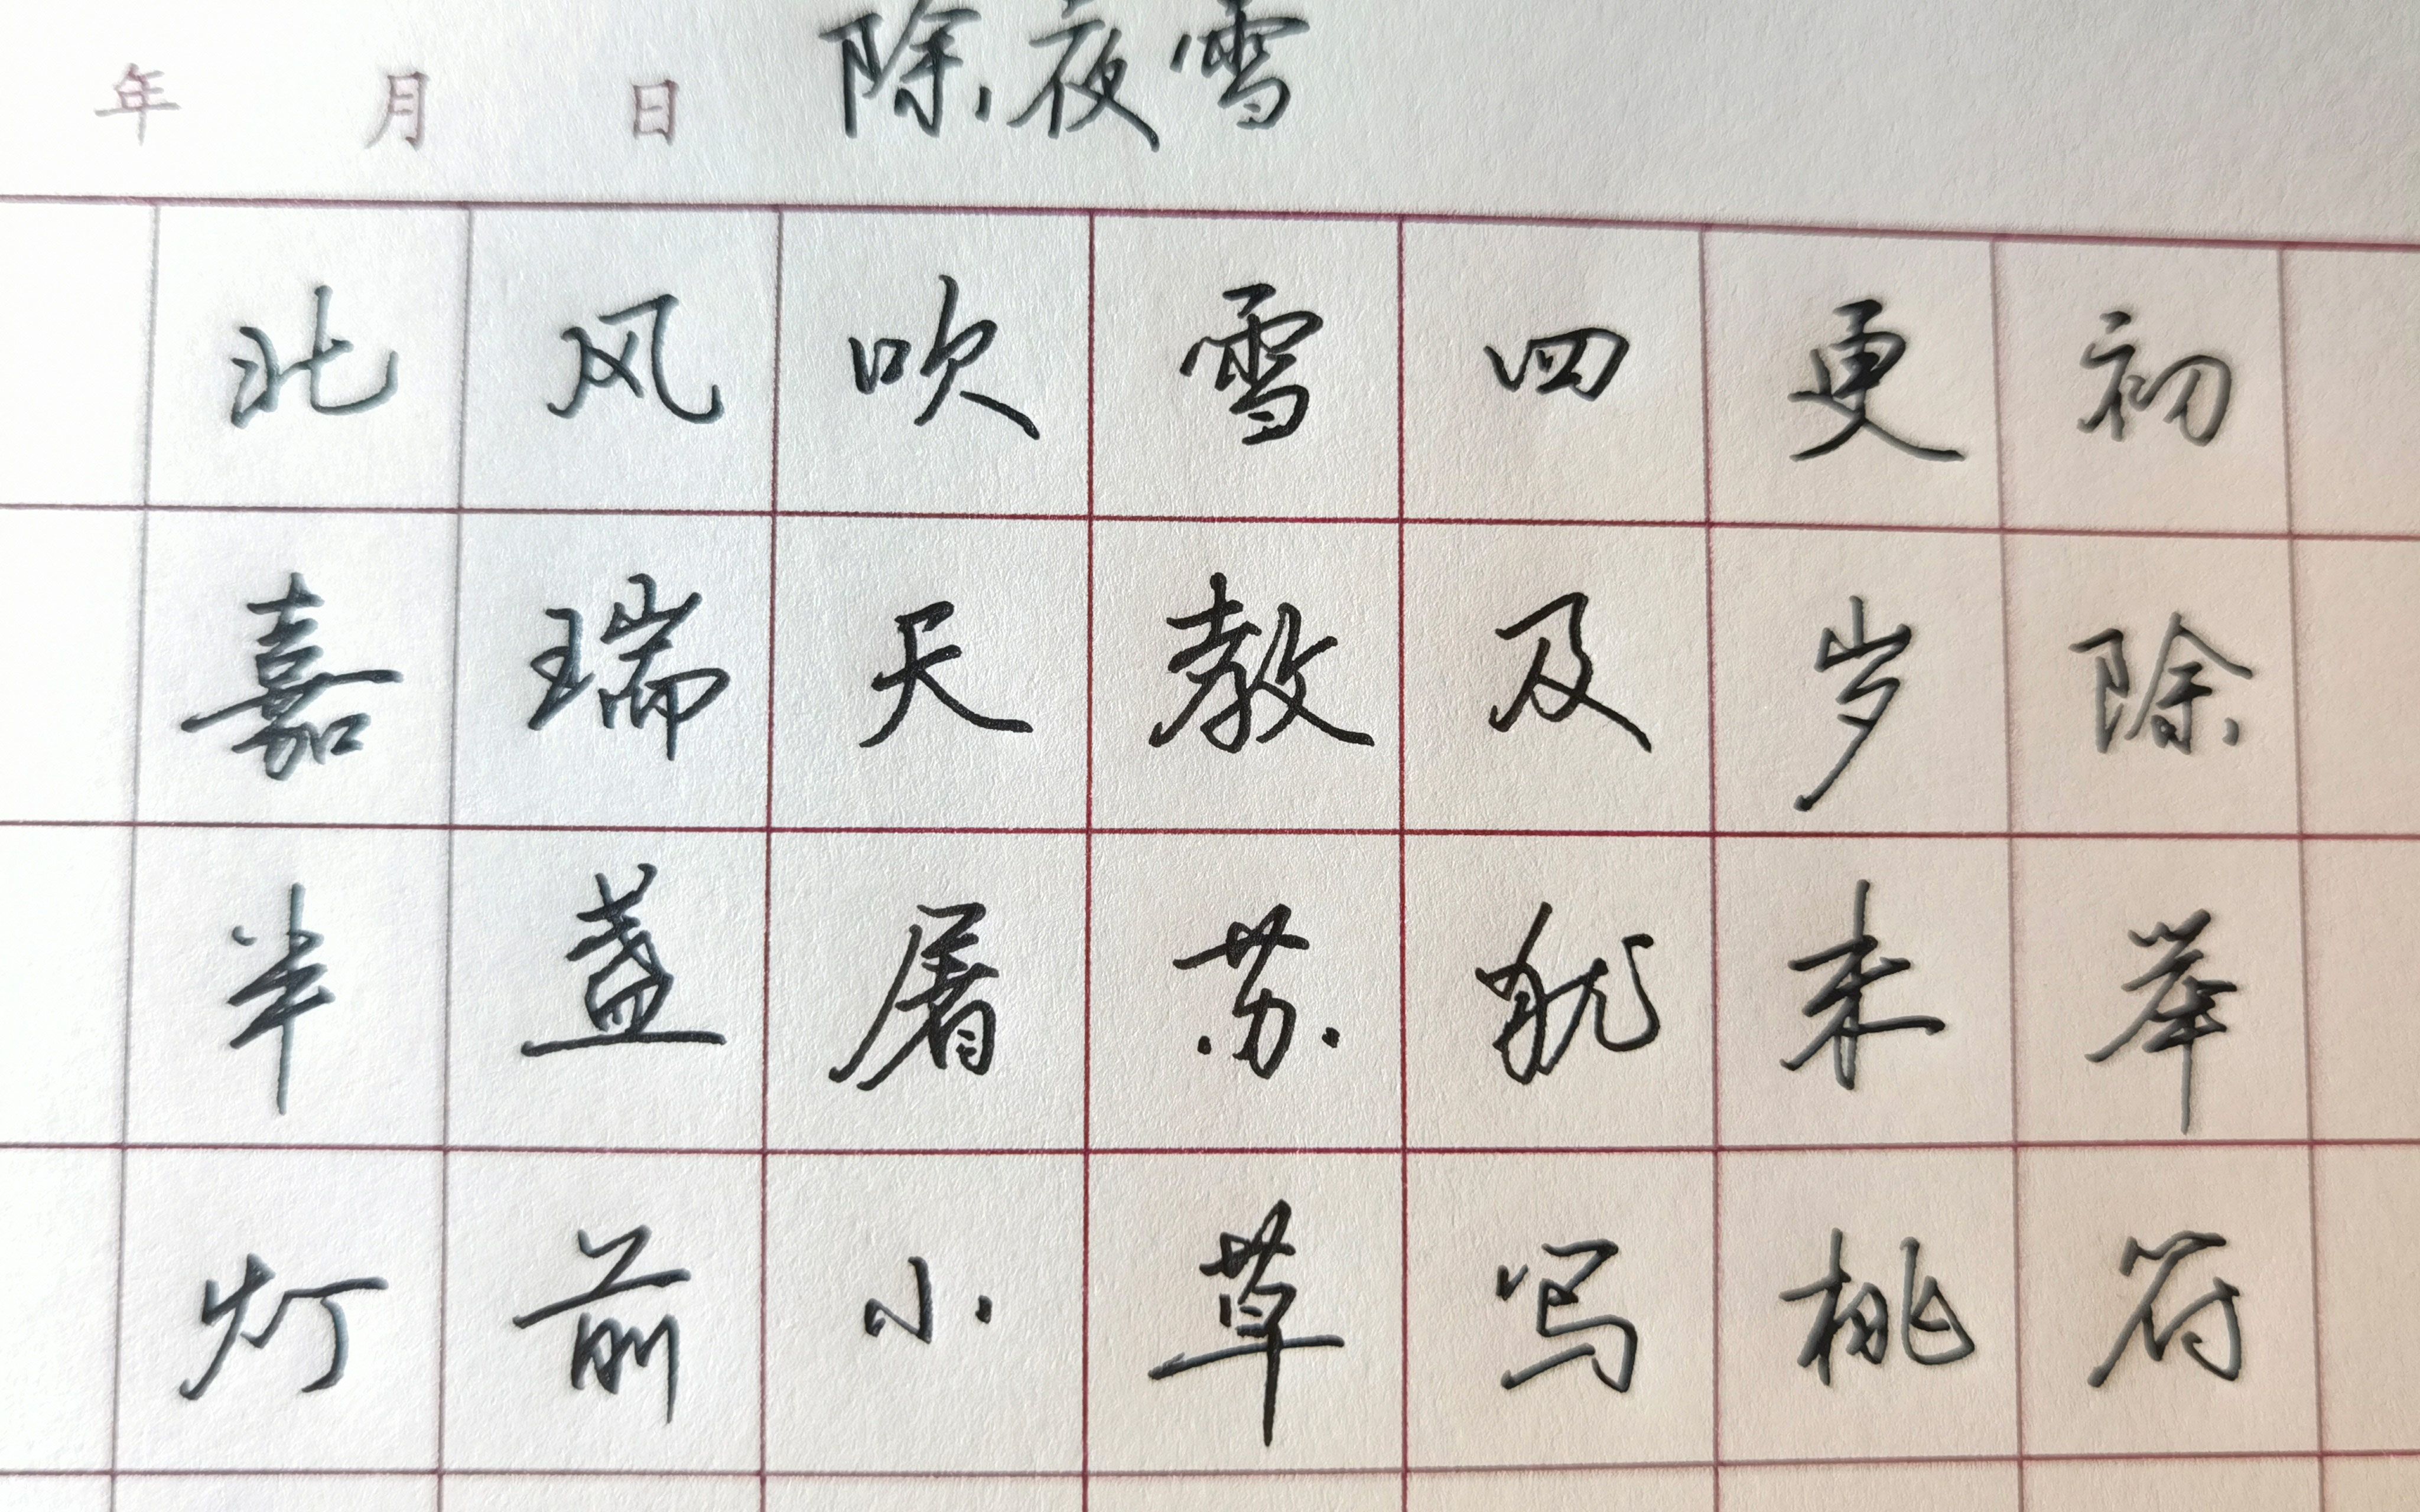 年 月 日 除夜雪
北风吹雪四更初
嘉瑞天教及岁除
半盏屠苏犹未举
灯前小草写桃符